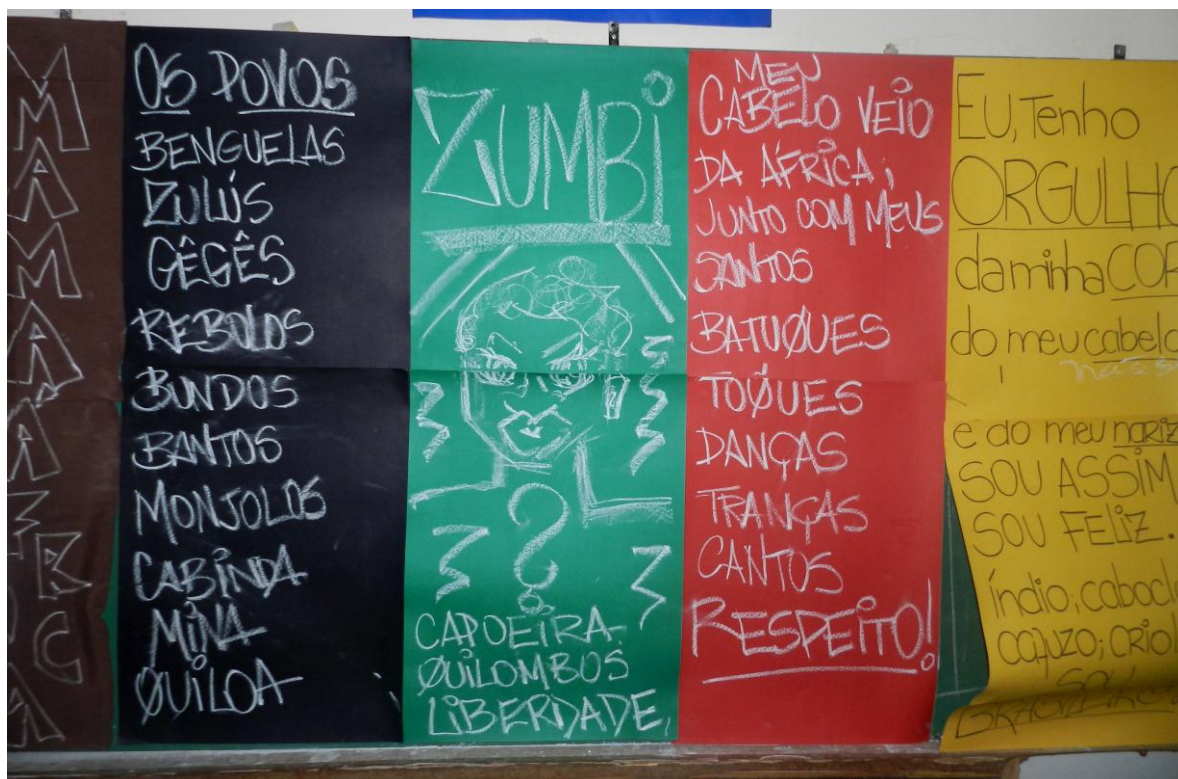 OS POVOS
BENGUELAS
ZULÚS
GÊGÊS
REBOLOS
BUNDOS
BANTOS
MONJOLOS
CABINDA
MINA
QUILOA
ZUMBi
?
CAPOEIRA
QUILOMBOS
LIBERDADE
MEU
CABELO VEIO
DA ÁFRICA;
JUNTO COM MEUS
SANTOS
BATUQUES
TOQUES
DANÇAS
TRANÇAS
CANTOS
RESPEITO!
EU, Tenho
ORGULHO
da minha COR
do meu cabelo
e do meu nariz
SOU ASSIM
SOU FELIZ.
índio; cabocl
cafuzo; criol
SOU